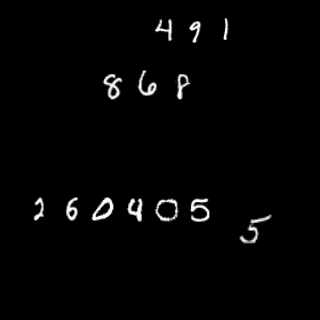 491
868
260405
5